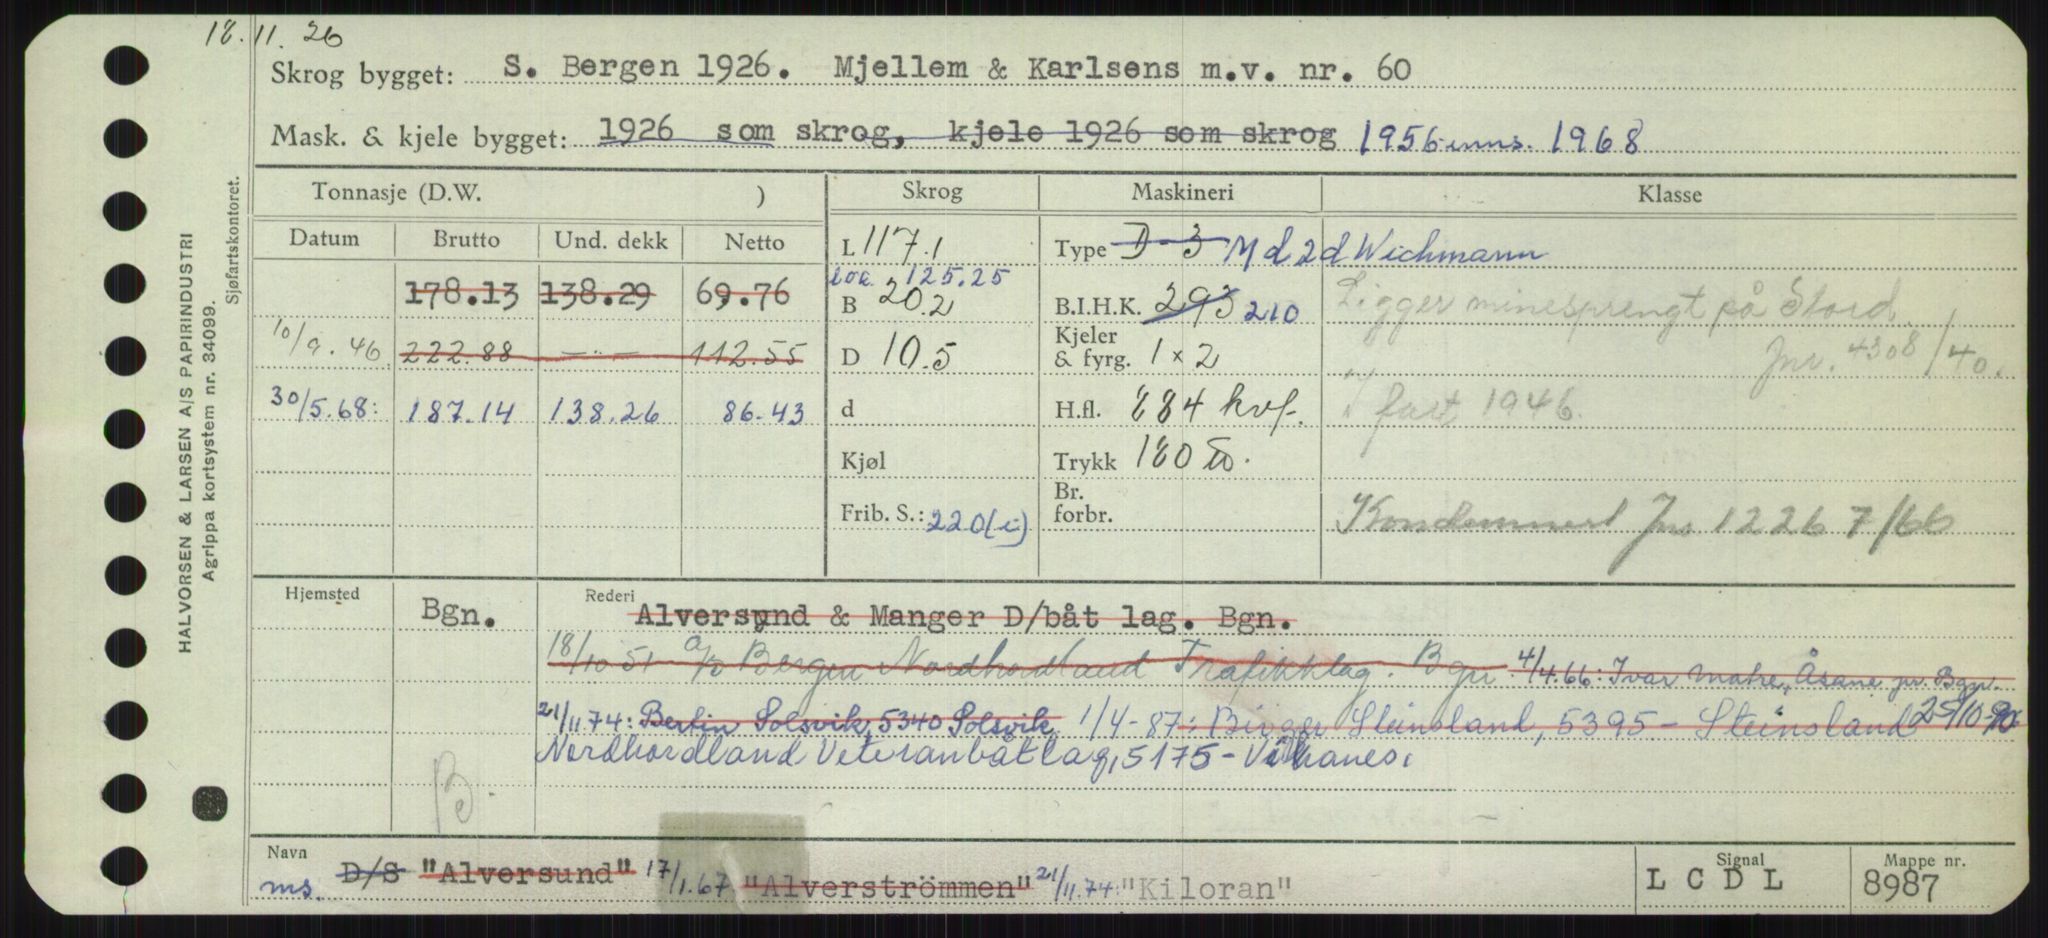 18.11.26
Skrog bygget: S. Bergen 1926. Mjellem & Karlsens m.v. nr. 60
Mask. & kjele bygget: 1926 som skrog, kjele 1926 som skrog 1956 inns. 1968
Tonnasje (D.W. ) Skrog Maskineri Klasse
Datum Brutto Und. dekk Netto
178.13 138.29 69.76
10/9.46 222.88 -"- 112.55
30/5.68: 187.14 138.26 86.43
L 117.1
125.25
B 20.2
D 10.5
d
Kjøl
Frib. S.: 220(i)
Type D-3 M d 2 d Wichmann
B.I.H.K. 293 210
Kjeler
& fyrg. 1 x 2
H.fl. 884 kvf.
Trykk 180
Br.
forbr.
Ligger minesprengt på Stord.
Jnr. 4308/40.
fart 1946.
Kondemnert Jnr 12267/66
Hjemsted Bgn. Rederi Alversund & Manger D/båt lag. Bgn.
18/10 51 A/S Bergen Nordhordland Trafikklag. Bgn. 4/4.66: Ivar Matre, Åsane pr. Bgn.
21/11.74: Bertin Solsvik, 5340 Solsvik 1/4-87: Birger Steinsland, 5395 - Steinsland 25/10-90
Nordhordland Veteranbåtlag, 5175 -
Navn
ms. D/S "Alversund" 17/1.67 "Alverströmmen" 21/11.74: "Kiloran"
Signal
L C D L
Mappe nr.
8987
HALVORSEN & LARSEN A/S PAPIRINDUSTRI
Agrippa kortsystem nr. 34099.
Sjøfartskontoret.